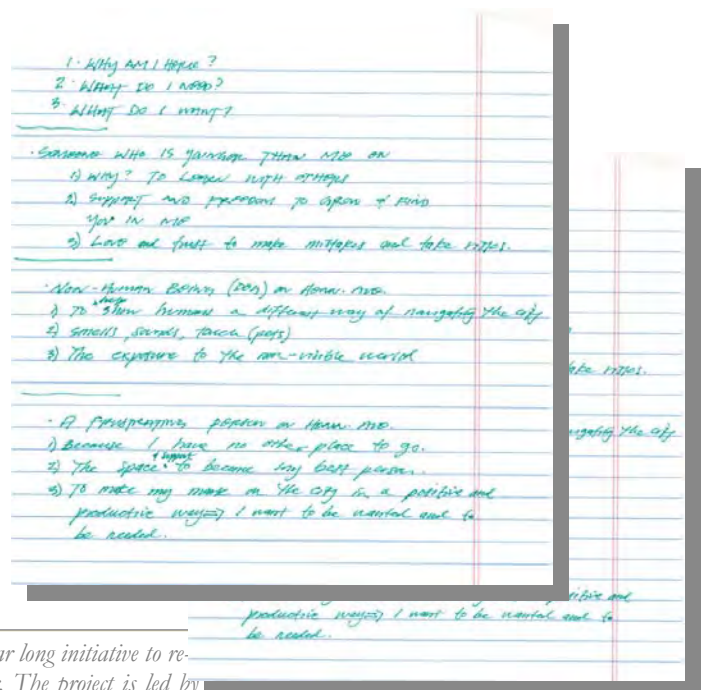 1. WHY AM I HERE?
2. WHAT DO I NEED?
3. WHAT DO I WANT?
· SOMEONE WHO IS YOUNGER THAN ME ON
1) WHY? TO LISTEN WITH OTHERS
2) SUPPORT AND FREEDOM TO GROW & FIND
YOU IN ME
3) Love and trust to make mistakes and take risks.
· NON-HUMAN BEING (DOG) on Henn. Ave.
1) To show humans a different way of navigating the city
2) smells, sounds, touch (pets)
3) The exposure to the non-visible world
· A FRUSTRATING person on Henn. Ave.
1) Because I have no other place to go.
2) The space & support to become my best person.
3) To make my mark on the city in a positive and
productive way => I want to be wanted and to
be needed.
take risks.
navigating the city
positive and
productive way => I want to be wanted and to
be needed.
ar long initiative to re-
The project is led by